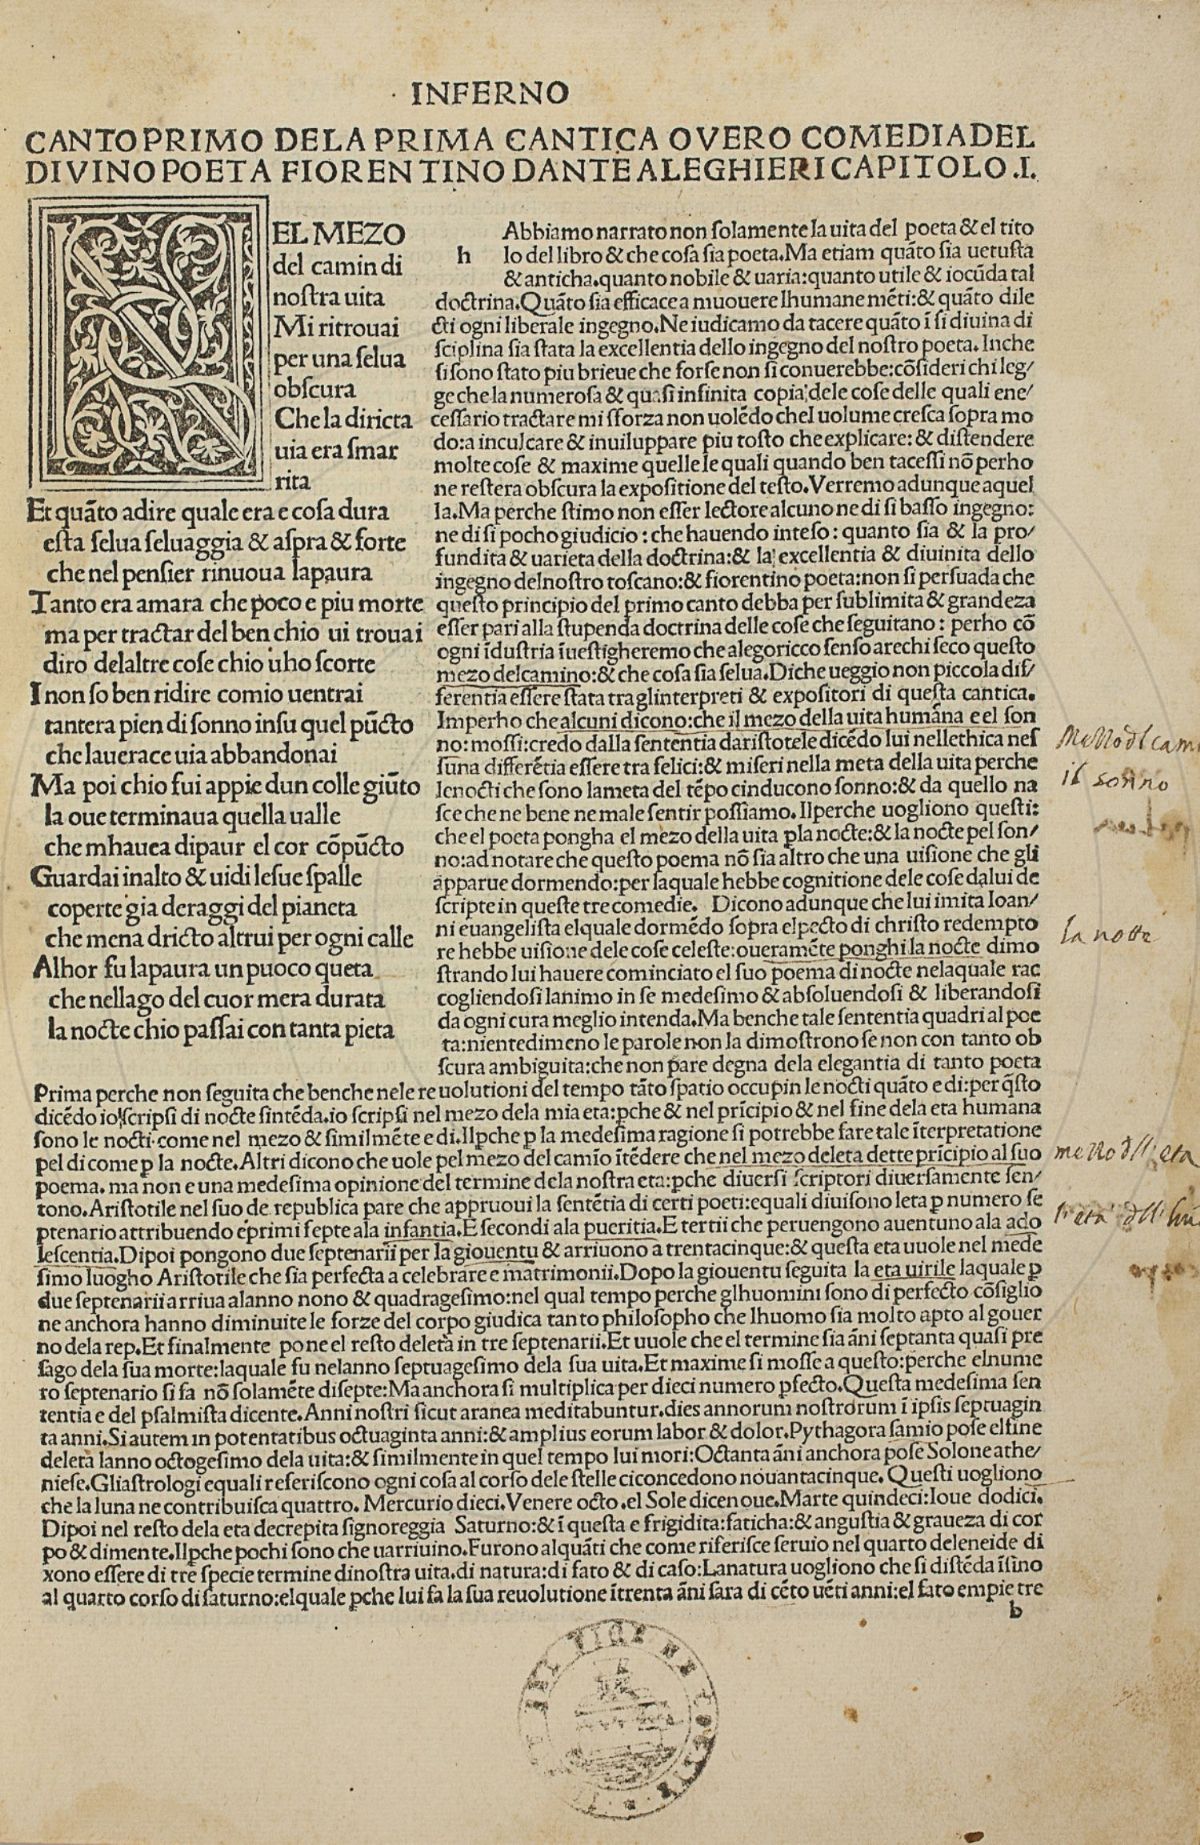 INFERNO
CANTO PRIMO DE LA PRIMA CANTICA OVERO COMEDIA DEL
DIVINO POETA FIORENTINO DANTE ALEGHIERI CAPITOLO .I.
N
EL MEZO
del camin di
nostra uita
Mi ritrouai
per una selua
obscura
Che la diricta
uia era smar
rita
Et quāto adire quale era e cosa dura
esta selua seluaggia & aspra & forte
che nel pensier rinuoua lapaura
Tanto era amara che poco e piu morte
ma per tractar del ben chio ui trouai
diro delaltre cose chio uho scorte
I non so ben ridire comio uentrai
tantera pien di sonno insu quel pūcto
che lauerace uia abbandonai
Ma poi chio fui appie dun colle giūto
la oue terminaua quella ualle
che mhauea dipaur el cor cōpūcto
Guardai inalto & uidi lesue spalle
coperte gia deraggi del pianeta
che mena dricto altrui per ogni calle
Alhor fu lapaura un puoco queta
che nellago del cuor mera durata
la nocte chio passai con tanta pieta
h
Abbiamo narrato non solamente la uita del poeta & el tito
lo del libro & che cosa sia poeta. Ma etiam quāto sia uetusta
& anticha. quanto nobile & uaria: quanto utile & iocūda tal
doctrina. Quāto sia efficace a muouere lhumane mēti: & quāto dile
cti ogni liberale ingegno. Ne iudicamo da tacere quāto ī si diuina di
sciplina sia stata la excellentia dello ingegno del nostro poeta. Inche
si sono stato piu brieue che forse non si conuerebbe: cōsideri chi leg/
ge che la numerosa & quasi infinita copia dele cose delle quali e ne/
cessario tractare mi sforza non uolēdo chel uolume cresca sopra mo
do: a inculcare & inuiluppare piu tosto che explicare: & distendere
molte cose & maxime quelle le quali quando ben tacessi nō perho
ne restera obscura la expositione del testo. Verremo adunque aquel
la. Ma perche stimo non esser lectore alcuno ne di si basso ingegno:
ne di si pocho giudicio: che hauendo inteso: quanto sia & la pro/
fundita & uarieta della doctrina: & la excellentia & diuinita dello
ingegno delnostro toscano: & fiorentino poeta: non si persuada che
questo principio del primo canto debba per sublimita & grandeza
esser pari alla stupenda doctrina delle cose che seguitano: perho cō
ogni īdustria īuestigheremo che alegoricco senso arechi seco questo
mezo delcamino: & che cosa sia selua. Diche ueggio non piccola dif/
ferentia essere stata tra glinterpreti & expositori di questa cantica.
Imperho che alcuni dicono: che il mezo della uita humana e el son
no: mossi: credo dalla sententia daristotele dicēdo lui nellethica nes
suna differētia essere tra felici: & miseri nella meta della uita perche
lenocti che sono lameta del tēpo cinducono sonno: & da quello na
sce che ne bene ne male sentir possiamo. Ilperche uogliono questi:
che el poeta pongha el mezo della uita pla nocte: & la nocte pel son/
no: ad notare che questo poema nō sia altro che una uisione che gli
apparue dormendo: per laquale hebbe cognitione dele cose dalui de
scripte in queste tre comedie. Dicono adunque che lui imita Ioan/
ni euangelista elquale dormēdo sopra elpecto di christo redempto
re hebbe uisione dele cose celeste: oueramēte ponghi la nocte dimo
strando lui hauere cominciato el suo poema di nocte nelaquale rac
cogliendosi lanimo in se medesimo & absoluendosi & liberandosi
da ogni cura meglio intenda. Ma benche tale sententia quadri al poe
ta: nientedimeno le parole non la dimostrono se non con tanto ob
scura ambiguita: che non pare degna dela elegantia di tanto poeta
Prima perche non seguita che benche nele reuolutioni del tempo tāto spatio occupin le nocti quāto e di: per q̄sto
dicēdo io scripsi di nocte sintēda. io scripsi nel mezo dela mia eta: pche & nel prīcipio & nel fine dela eta humana
sono le nocti come nel mezo & similmēte e di. Ilpche p la medesima ragione si potrebbe fare tale īterpretatione
pel di come p la nocte. Altri dicono che uole pel mezo del camīo ītēdere che nel mezo deleta dette prīcipio al suo
poema. ma non e una medesima opinione del termine dela nostra eta: pche diuersi scriptori diuersamente sen/
tono. Aristotile nel suo de republica pare che appruoui la sentētia di certi poeti: equali diuisono leta p numero se
ptenario attribuendo e primi septe ala infantia. E secondi ala pueritia. E tertii che peruengono auentuno ala ado
lescentia. Dipoi pongono due septenarii per la giouentu & arriuono a trentacinque: & questa eta uuole nel mede
simo luogho Aristotile che sia perfecta a celebrare e matrimonii. Dopo la giouentu seguita la eta uirile laquale p
due septenarii arriua alanno nono & quadragesimo: nel qual tempo perche glhuomini sono di perfecto cōsiglio
ne anchora hanno diminuite le forze del corpo giudica tanto philosopho che lhuomo sia molto apto al gouer
no dela rep. Et finalmente pone el resto deleta in tre septenarii. Et uuole che el termine sia āni septanta quasi pre
sago dela sua morte: laquale fu nelanno septuagesimo dela sua uita. Et maxime si mosse a questo: perche elnume
ro septenario si fa nō solamēte disepte: Ma anchora si multiplica per dieci numero pfecto. Questa medesima sen
tentia e del psalmista dicente. Anni nostri sicut aranea meditabuntur. dies annorum nostrorum ī ipsis septuagin
ta anni. Si autem in potentatibus octuaginta anni: & amplius eorum labor & dolor. Pythagora samio pose elfine
deleta lanno octogesimo dela uita: & similmente in quel tempo lui mori: Octanta āni anchora pose Solone athe/
niese. Gli astrologi equali referiscono ogni cosa al corso dele stelle ci concedono nouantacinque. Questi uogliono
che la luna ne contribuisca quattro. Mercurio dieci. Venere octo. el Sole dicenoue. Marte quindeci: Ioue dodici.
Dipoi nel resto dela eta decrepita signoreggia Saturno: & ī questa e frigidita: faticha: & angustia & graueza di cor
po & di mente. Ilpche pochi sono che uarriuino. Furono alquāti che come riferisce seruio nel quarto deleneide di
xono essere di tre specie termine dinostra uita. di natura: di fato & di caso: Lanatura uogliono che si distēda īsino
al quarto corso di saturno: elquale pche lui fa la sua reuolutione ītrenta āni sara di cēto uēti anni: el fato empie tre
b
il sonno
la notte